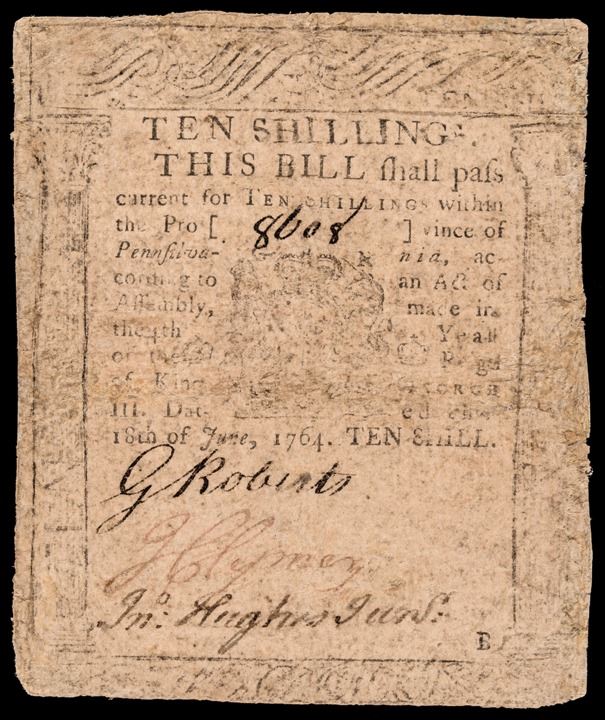 TEN SHILLINGS.
THIS BILL ſhall paſs
current for TEN SHILLINGS within
the Pro [ 8608 ] vince of
Pennſilva- nia, ac-
cording to an Act of
Aſſembly, made in
the 4th Year
of the
of King GEORGE
III. Dat- ed the
18th of June, 1764. TEN SHILL.
G Roberts
G Clymer
Jno. Hughes Junr.
B